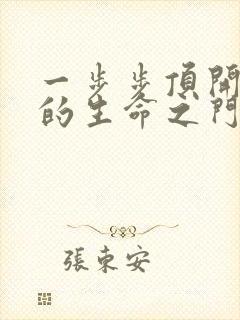 一步步頂開
的生命之門
張東安